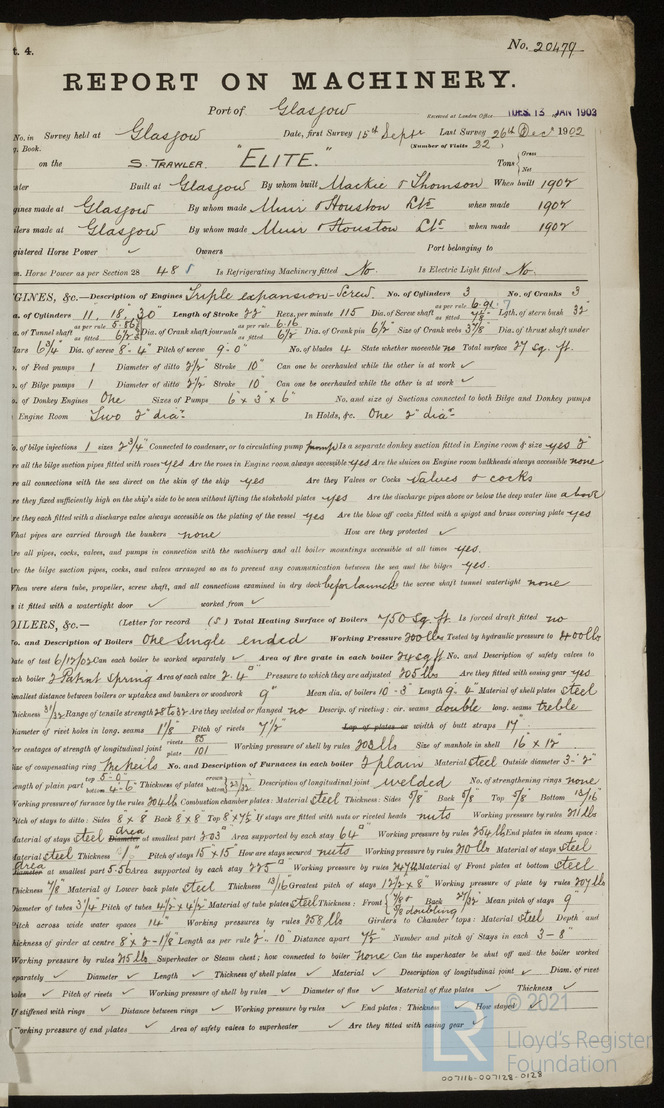 t. 4.
No. 20479
REPORT ON MACHINERY.
Port of Glasgow
Received at London Office TUES. 13 JAN 1903
No. in Survey held at Glasgow Date, first Survey 15th Septr Last Survey 26th Decr 1902
Book. (Number of Visits 22)
on the S. TRAWLER "ELITE." Tons { Gross
Net
Built at Glasgow By whom built Mackie & Thomson When built 1902
gines made at Glasgow By whom made Muir & Houston Ltd. when made 1902
ilers made at Glasgow By whom made Muir & Houston Ltd. when made 1902
gistered Horse Power ✓ Owners Port belonging to
Horse Power as per Section 28 48 Is Refrigerating Machinery fitted No. Is Electric Light fitted No.
GINES, &c.—Description of Engines Triple expansion-Screw. No. of Cylinders 3 No. of Cranks 3
a. of Cylinders 11, 18, 30" Length of Stroke 22" Revs. per minute 115 Dia. of Screw shaft as per rule 6.91 as fitted Lgth. of stern bush 32"
a. of Tunnel shaft as per rule as fitted Dia. of Crank shaft journals as per rule 6.16 as fitted 6½" Dia. of Crank pin 6½" Size of Crank webs 3⅞" Dia. of thrust shaft under
lars 6¾" Dia. of screw 8'-4" Pitch of screw 9'-0" No. of blades 4 State whether moveable no Total surface 27 sq. ft.
o. of Feed pumps 1 Diameter of ditto 2½" Stroke 10" Can one be overhauled while the other is at work ✓
o. of Bilge pumps 1 Diameter of ditto 2½" Stroke 10" Can one be overhauled while the other is at work ✓
o. of Donkey Engines One Sizes of Pumps 6" x 3" x 6" No. and size of Suctions connected to both Bilge and Donkey pumps
Engine Room Two 2" diar. In Holds, &c. One 2" diar.
o. of bilge injections 1 sizes 2¾" Connected to condenser, or to circulating pump pump Is a separate donkey suction fitted in Engine room & size yes 2"
re all the bilge suction pipes fitted with roses yes Are the roses in Engine room always accessible yes Are the sluices on Engine room bulkheads always accessible none
re all connections with the sea direct on the skin of the ship yes Are they Valves or Cocks valves & cocks
re they fixed sufficiently high on the ship's side to be seen without lifting the stokehold plates yes Are the discharge pipes above or below the deep water line above
re they each fitted with a discharge valve always accessible on the plating of the vessel yes Are the blow off cocks fitted with a spigot and brass covering plate yes
What pipes are carried through the bunkers none How are they protected ✓
re all pipes, cocks, valves, and pumps in connection with the machinery and all boiler mountings accessible at all times yes.
re the bilge suction pipes, cocks, and valves arranged so as to prevent any communication between the sea and the bilges yes.
When were stern tube, propeller, screw shaft, and all connections examined in dry dock before launch Is the screw shaft tunnel watertight none
s it fitted with a watertight door ✓ worked from ✓
OILERS, &c.— (Letter for record (S)) Total Heating Surface of Boilers 750 sq. ft Is forced draft fitted no
o. and Description of Boilers One Single ended Working Pressure 200 lbs Tested by hydraulic pressure to 400 lb
ate of test 6/12/02 Can each boiler be worked separately ✓ Area of fire grate in each boiler 24 sq ft No. and Description of safety valves to
ach boiler 2 Patent Spring Area of each valve 2.4 □" Pressure to which they are adjusted 205 lbs Are they fitted with easing gear yes
mallest distance between boilers or uptakes and bunkers or woodwork 9" Mean dia. of boilers 10'-3" Length 9'-4" Material of shell plates steel
hickness 31/32 Range of tensile strength 28 to 32 Are they welded or flanged no Descrip. of riveting: cir. seams double long. seams treble
iameter of rivet holes in long. seams 1⅛" Pitch of rivets 7½" Lap of plates or width of butt straps 17"
er centages of strength of longitudinal joint rivets 85 plate 101 Working pressure of shell by rules 203 lbs Size of manhole in shell 16" x 12"
ize of compensating ring McNeils No. and Description of Furnaces in each boiler 2 plain Material steel Outside diameter 3'-2"
ength of plain part top 5'-0" bottom 4'-6" Thickness of plates crown bottom } 23/32 Description of longitudinal joint welded No. of strengthening rings none
Working pressure of furnace by the rules 204 lbs Combustion chamber plates: Material steel Thickness: Sides ⅝" Back ⅝" Top ⅝" Bottom 13/16"
itch of stays to ditto: Sides 8" x 8" Back 8" x 8" Top 8" x 7½" If stays are fitted with nuts or riveted heads nuts Working pressure by rules 211 lbs
aterial of stays steel Diameter Area at smallest part 2.03 □" Area supported by each stay 64 □" Working pressure by rules 254 lbs End plates in steam space:
aterial steel Thickness 1" Pitch of stays 15" x 15" How are stays secured nuts Working pressure by rules 210 lbs Material of stays steel
Diameter Area at smallest part 5.56 Area supported by each stay 225 □" Working pressure by rules 247 lbs Material of Front plates at bottom steel
hickness ⅞" Material of Lower back plate steel Thickness 13/16" Greatest pitch of stays 12½ x 8" Working pressure of plate by rules 207 lbs
iameter of tubes 3¼" Pitch of tubes 4½" x 4½" Material of tube plates steel Thickness: Front { ⅝ doubling Back Mean pitch of stays 9
itch across wide water spaces 14" Working pressures by rules 258 lbs Girders to Chamber tops: Material steel Depth and
hickness of girder at centre 8" x 2-⅛" Length as per rule 2'-10" Distance apart 7½" Number and pitch of Stays in each 3-8"
orking pressure by rules 215 lbs Superheater or Steam chest; how connected to boiler None Can the superheater be shut off and the boiler worked
eparately ✓ Diameter ✓ Length ✓ Thickness of shell plates ✓ Material ✓ Description of longitudinal joint ✓ Diam. of rivet
oles ✓ Pitch of rivets ✓ Working pressure of shell by rules ✓ Diameter of flue ✓ Material of flue plates ✓ Thickness ✓
f stiffened with rings ✓ Distance between rings ✓ Working pressure by rules ✓ End plates: Thickness ✓ How stayed ✓
orking pressure of end plates ✓ Area of safety valves to superheater ✓ Are they fitted with easing gear ✓
© 2021
Lloyd's Register
Foundation
007116-007128-0128